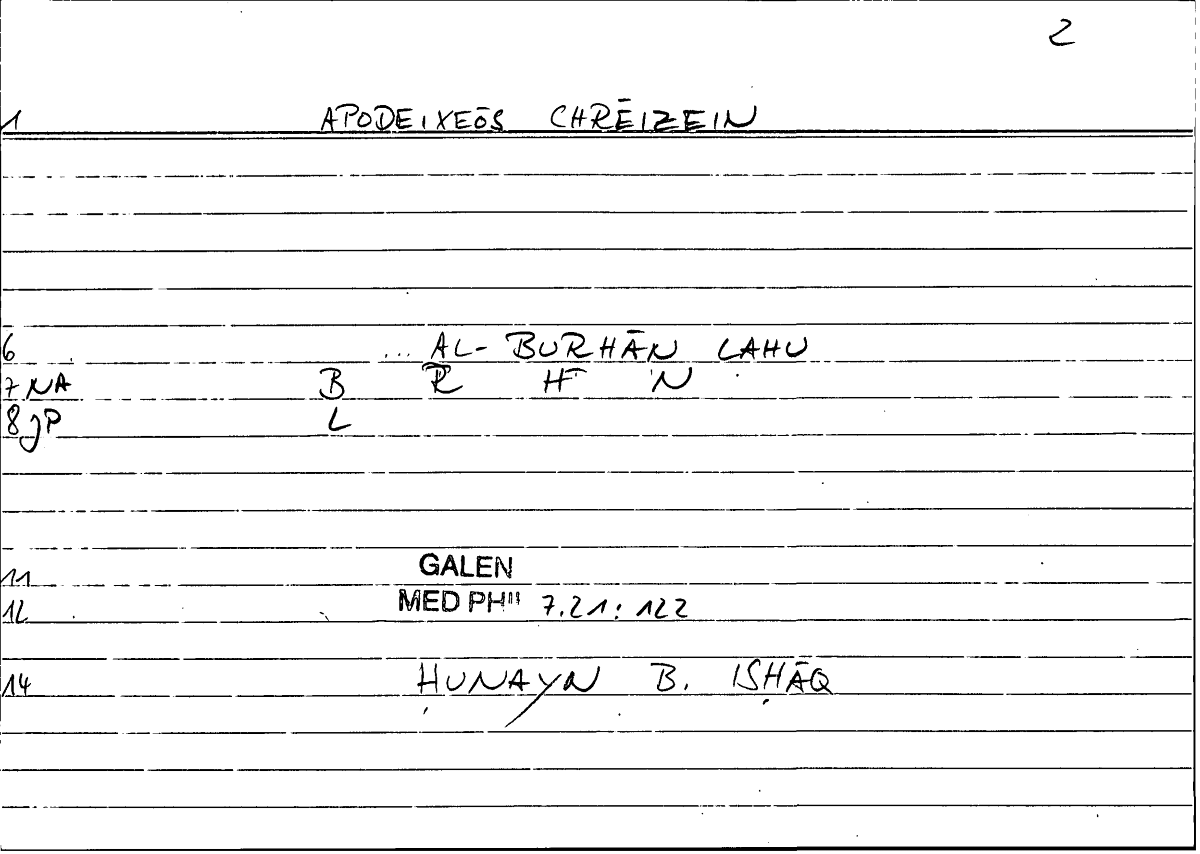 2
1 APODEIXEŌS CHRĒIZEIN
6 ... AL-BURHĀN LAHU
7 NA B R H N
8 JP L
11 GALEN
12 MED PHIL 7.21: 122
14 ḤUNAYN B. ISḤĀQ